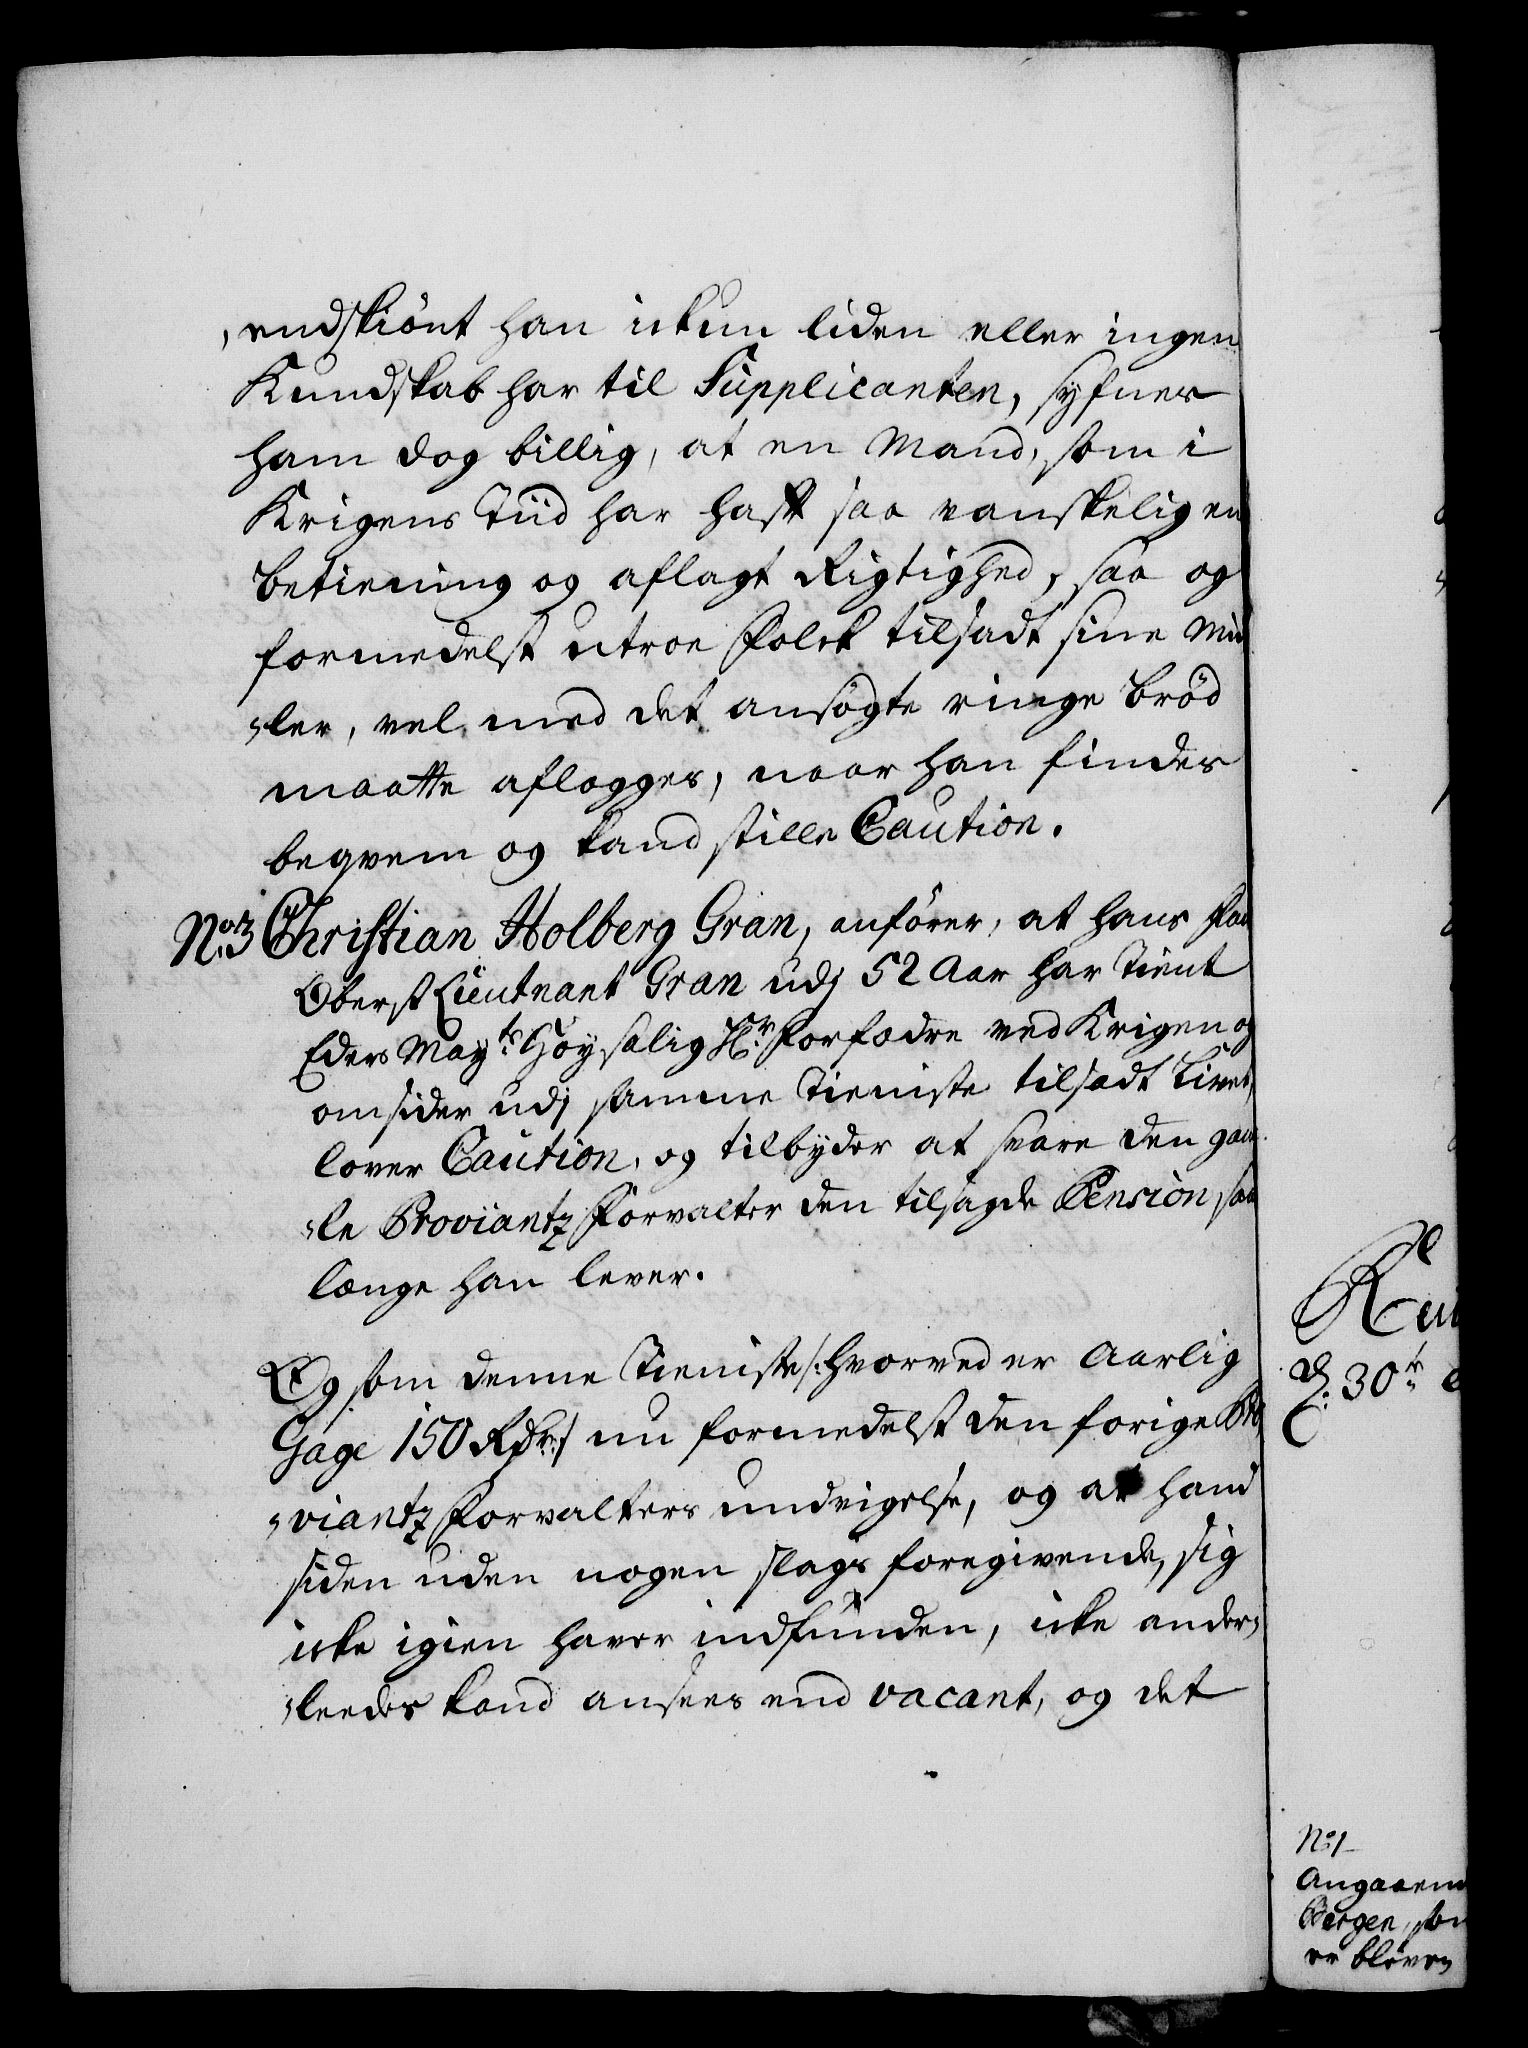 , endskiönt han ickun liden eller ingen
Kundskab har til Supplicanten, syfnes
ham dog billig, at en Mand, som i
Krigens Tiid har haft saa vanskelig en
betiening og aflagt Rigtighed, saa og
formedelst utroe Folck tilsadt sine Mid
„ler, vel med det ansögte ringe Bröd
maatte aflægges, naar han findes
beqvem og kand stille Caution.
No. 3 Christian Holberg Gran, anförer, at hans Fa
Oberst Lieutnant Gran udj 52 Aar har Tient
Eders Mayts. Höysalig Hr. Forfædre ved Krigen og
omsider udj samme Tieniste tilsadt Livet,
lover Caution, og tilbyder at svare den gam
„le Proviantz Forvalter den tilsagde Pension saa
længe han lever.
Og som denne Tieniste /: hvorved er Aarlig
Gage 150 Rdr. :/ nu formedelst den forige Pro
„viantz Forvalters undvigelse, og at hand
siden uden nogen slags foregivende, sig
icke igien haver indfunden, icke ander„
„leedes kand ansees end vacant, og det
D. 30te
No. 1
Angaaen
Bergen, som
er bleven